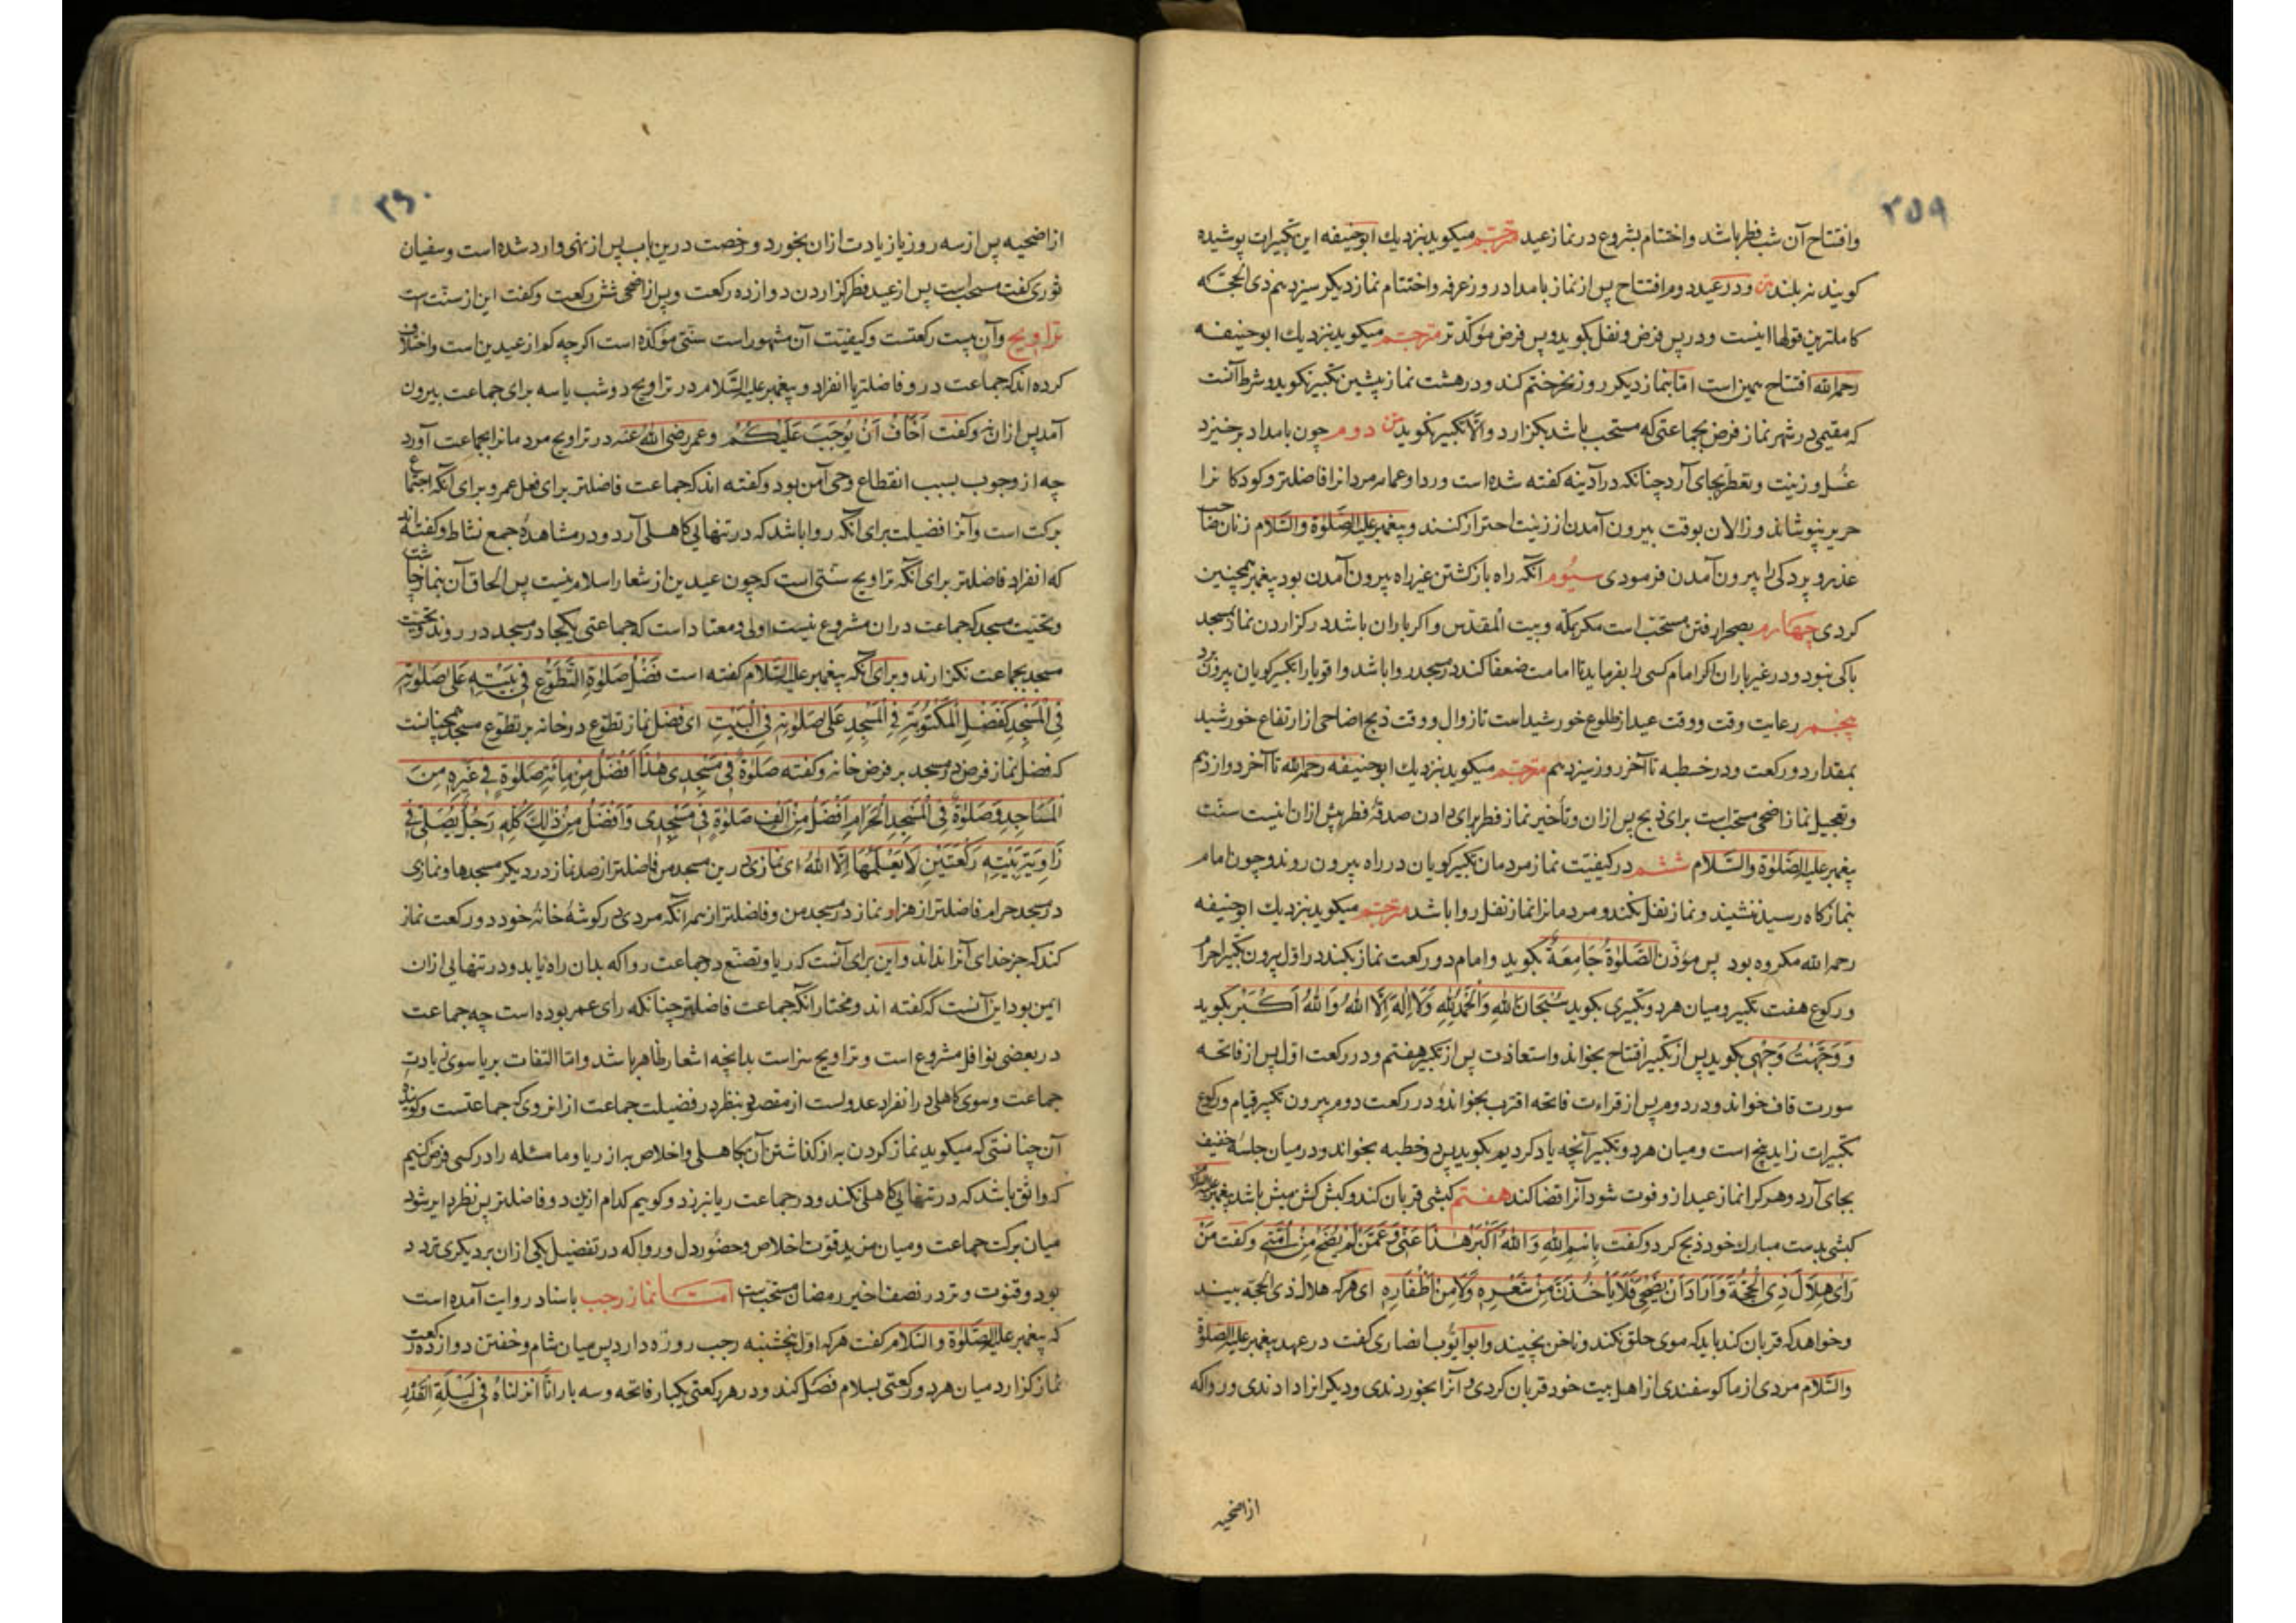 ۲۵۹
وافتتاح آن شب فطر باشد واختتام بشروع در نماز عید مترجم میکوید نزدیك ابوحنیفه این تکبیرات پوشیده
کویند نه بلند متن ودر عید دوم افتتاح پس از نماز بامداد روز عرفه واختتام نماز دیکر سیزدهم ذی الحجّه که
کاملترین قولها اینست ودر پس فرض ونفل بکوید وپس فرض مؤکّدتر مترجم میکوید نزدیك ابوحنیفه
رحمه الله افتتاح همین است امّا بنماز دیکر روز نحر ختم کند ودر هشت نماز پیشین تکبیر نکوید وشرط آنست
که مقیمی در شهر نماز فرض بجماعتی که مستحب باشد بکزارد والّا تکبیر نکوید متن دوم چون بامداد برخیزد
غسل وزینت وتعطّر بجای آرد چنانکه در آدینه کفته شده است وردا وعمامه مردانرا فاضلتر وکودکانرا
حریر نپوشاند وزالان بوقت بیرون آمدن از زینت احتراز کنند وپیغمبر علیه الصّلوة والسّلام زنان صاحب
عذر وپردکی را بیرون آمدن فرمودی سیّوم آنکه راه بازکشتن غیر راه بیرون آمدن بود پیغمبر همچنین
کردی چهارم بصحرا رفتن مستحبّ است مکر بمکّه وبیت المقدّس واکر باران باشد در کزاردن نماز بمسجد
باکی نبود ودر غیر باران اکر امام کسی را بفرماید تا امامت ضعفا کند در مسجد روا باشد واقویا را تکبیر کویان بیرون برد
پنجم رعایت وقت ووقت عید از طلوع خورشید است تا زوال ووقت ذبح اضاحی از ارتفاع خورشید
بمقدار دو رکعت ودر خطبه تا آخر روز سیزدهم مترجم میکوید نزدیك ابوحنیفه رحمه الله تا آخر دوازدهم
وتعجیل نماز اضحی مستحب است برای ذبح پس ازان وتأخیر نماز فطر برای دادن صدقهٔ فطر پیش ازان اینست سنّت
پیغمبر علیه الصّلوة والسّلام ششم در کیفیّت نماز مردمان تکبیر کویان در راه بیرون روند وچون امام
بنمازکاه رسید ننشیند ونماز نفل نکند ومردمانرا نماز نفل روا باشد مترجم میکوید نزدیك ابوحنیفه
رحمه الله مکروه بود پس مؤذّن الصَّلوةُ جَامِعَةٌ بکوید وامام دو رکعت نماز بکند در اوّل بیرون تکبیر احرام
ورکوع هفت تکبیر ومیان هر دو تکبیری بکوید سُبْحَانَ اللهِ وَالْحَمْدُ لِلهِ وَلَا اِلٰهَ اِلَّا اللهُ وَاللهُ اَكْبَرُ بکوید
وَوَجَّهْتُ وَجْهِیَ بکوید پس از تکبیر افتتاح بخواند واستعاذت پس از تکبیر هفتم ودر رکعت اوّل پس از فاتحه
سورت قاف خواند ودر دوم پس از قراءت فاتحه اقترب بخواند ودر رکعت دوم بیرون تکبیر قیام ورکوع
تکبیرات زاید پنج است ومیان هر دو تکبیر آنچه یاد کردیم بکوید پس دو خطبه بخواند ودر میان جلسهٔ خفیف
بجای آرد وهر کرا نماز عید ازو فوت شود آنرا قضا کند هفتم کبشی قربان کند وکبش کش میش باشد پیغمبر علیه السلام
کبشی بدست مبارك خود ذبح کرد وکفت بِاسْمِ اللهِ وَاللهُ اَكْبَرُ هٰذَا عَنّی وَعَمَّنْ لَمْ یُضَحِّ مِنْ اُمَّتِی وکفت مَنْ
رَاٰی هِلَالَ ذِی الْحِجَّةِ وَاَرَادَ اَنْ یُضَحِّیَ فَلَا یَأْخُذَنَّ مِنْ شَعْرِهِ وَلَا مِنْ اَظْفَارِهِ ای هرکه هلال ذی الحجّه بیند
وخواهد که قربان کند باید که موی حلق نکند وناخن نچیند وابو ایّوب انصاری کفت در عهد پیغمبر علیه الصلوة
والسّلام مردی از ما کوسفندی از اهل بیت خود قربان کردی وآنرا بخوردندی ودیکرانرا دادندی وروا که
از اضحیه
۲۶۰
از اضحیه پس از سه روز یا زیادت ازان بخورد ورخصت درین باب پس از نهی وارد شده است وسفیان
ثوری کفت مستحب است پس از عید فطر کزاردن دوازده رکعت وپس از اضحی شش رکعت وکفت این از سنّت است
تراویح وآن بیست رکعتست وکیفیّت آن مشهور است سنّتی مؤکّده است اکرچه کم از عیدین است واختلاف
کرده اند که جماعت در و فاضلتر یا انفراد وپیغمبر علیه السّلام در تراویح دو شب یا سه برای جماعت بیرون
آمد پس ازان نه وکفت اَخَافُ اَنْ یُوجَبَ عَلَیْكُمْ وعمر رضی الله عنه در تراویح مردمانرا بجماعت آورد
چه از وجوب بسبب انقطاع وحی آمن بود وکفته اند که جماعت فاضلتر برای فعل عمر وبرای آنکه اجتماع
برکت است وآنرا فضیلت برای آنکه روا باشد که در تنهایی کاهلی آرد ودر مشاهدهٔ جمع نشاط وکفته اند
که انفراد فاضلتر برای آنکه تراویح سنّتی است که چون عیدین از شعار اسلام نیست پس الحاق آن بنماز چاشت
وتحیّت مسجد که جماعت دران مشروع نیست اولی ومعتاد است که جماعتی بیکجا در مسجد در روند وتحیّت
مسجد بجماعت نکزارند وبرای آنکه پیغمبر علیه السّلام کفته است فَضْلُ صَلٰوةِ التَّطَوُّعِ فِی بَیْتِهِ عَلٰی صَلٰوتِهِ
فِی الْمَسْجِدِ كَفَضْلِ الْمَكْتُوبَةِ فِی الْمَسْجِدِ عَلٰی صَلٰوتِهِ فِی الْبَیْتِ ای فضل نماز تطوّع در خانه بر تطوّع مسجد همچنانست
که فضل نماز فرض در مسجد بر فرض خانه وکفته صَلٰوةٌ فِی مَسْجِدِی هٰذَا اَفْضَلُ مِنْ مِائَةِ صَلٰوةٍ فِی غَیْرِهِ مِنَ
الْمَسَاجِدِ وَصَلٰوةٌ فِی الْمَسْجِدِ الْحَرَامِ اَفْضَلُ مِنْ اَلْفِ صَلٰوةٍ فِی مَسْجِدِی وَاَفْضَلُ مِنْ ذٰلِكَ كُلِّهِ رَجُلٌ یُصَلِّی فِی
زَاوِیَةِ بَیْتِهِ رَكْعَتَیْنِ لَا یَعْلَمُهَا اِلَّا اللهُ ای نمازی درین مسجد من فاضلتر از صد نماز در دیکر مسجدها ونمازی
در مسجد حرام فاضلتر از هزار نماز در مسجد من وفاضلتر از همه آنکه مردی در کوشهٔ خانهٔ خود دو رکعت نماز
کند که جز خدای آنرا نداند واین برای آنست که ریا وتصنّع در جماعت روا که بدان راه یابد ودر تنهایی ازان
ایمن بود این آنست که کفته اند ومختار آنکه جماعت فاضلتر چنانکه رای عمر بوده است چه جماعت
در بعضی نوافل مشروع است وتراویح سزاست بدانچه اشعار ظاهر باشد وامّا التفات بریا سوی زیادت
جماعت وسوی کاهلی در انفراد عدولست از مقصود بنظر در فضیلت جماعت ازانروی که جماعتست وکوینده
آن چنانستی که میکوید نماز کردن به از کذاشتن آن بکاهلی واخلاص به از ریا وما مسئله را در کسی فرض کنیم
که واثق باشد که در تنهایی کاهلی نکند ودر جماعت ریا نورزد وکوییم کدام ازین دو فاضلتر پس نظر دایر شود
میان برکت جماعت ومیان مزید قوّت اخلاص وحضور دل وروا که در تفضیل یکی ازان بر دیکری تردد
بود وقنوت وتر در نصف اخیر رمضان مستحبّ است امّا نماز رجب باسناد روایت آمده است
که پیغمبر علیه الصّلوة والسّلام کفت هرکه اوّل پنجشنبه رجب روزه دارد پس میان شام وخفتن دوازده رکعت
نماز کزارد میان هر دو رکعتی بسلام فصل کند ودر هر رکعتی یکبار فاتحه وسه بار انّا انزلناهُ فِی لَیْلَةِ الْقَدْرِ